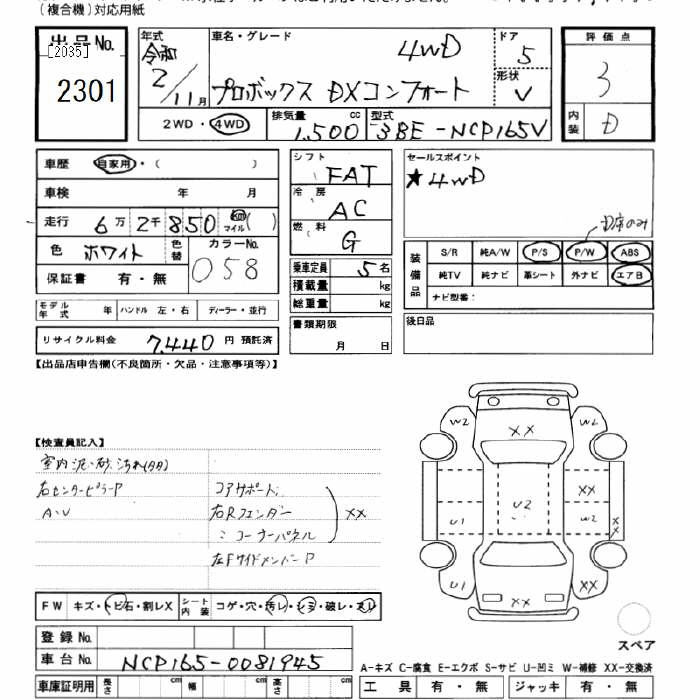 (複合機)対応用紙
出品No.
[2035]
2301
年式
令和
2/11月
車名・グレード
4WD
プロボックス DXコンフォート
ドア
5
形状
V
評価点
3
内装
D
2WD・4WD
排気量
1,500 cc
型式
3BE-NCP165V
車歴 自家用・( )
車検 年 月
走行 6万2千850 km マイル ( )
色 ホワイト 色替
カラーNo.
058
保証書 有・無
シフト
FAT
冷房
AC
燃料
G
乗車定員 5名
積載量 kg
総重量 kg
書類期限
月 日
セールスポイント
★4WD
D席のみ
装備品
S/R 純A/W P/S P/W ABS
純TV 純ナビ 革シート 外ナビ エアB
ナビ型番:
後日品
モデル年式 年 ハンドル 左・右 ディーラー・並行
リサイクル料金 7,440 円 預託済
【出品店申告欄(不良箇所・欠品・注意事項等)】
【検査員記入】
室内泥・砂、汚れ
右センターピラーP コアサポート
A・V 右Rフェンダー XX
〃 コーナーパネル
左FサイドメンバーP
W2 W2
XX
XX
U2
U1 W2
XX
U1 XX
XX
スペア
FW キズ・トビ石・割レX シート内装 コゲ・穴・汚レ・シミ・破レ・スレ
登録No.
車台No. NCP165-0081945
車庫証明用 長さ cm 幅 cm 高さ cm
A-キズ C-腐食 E-エクボ S-サビ U-凹ミ W-補修 XX-交換済
工具 有・無 ジャッキ 有・無